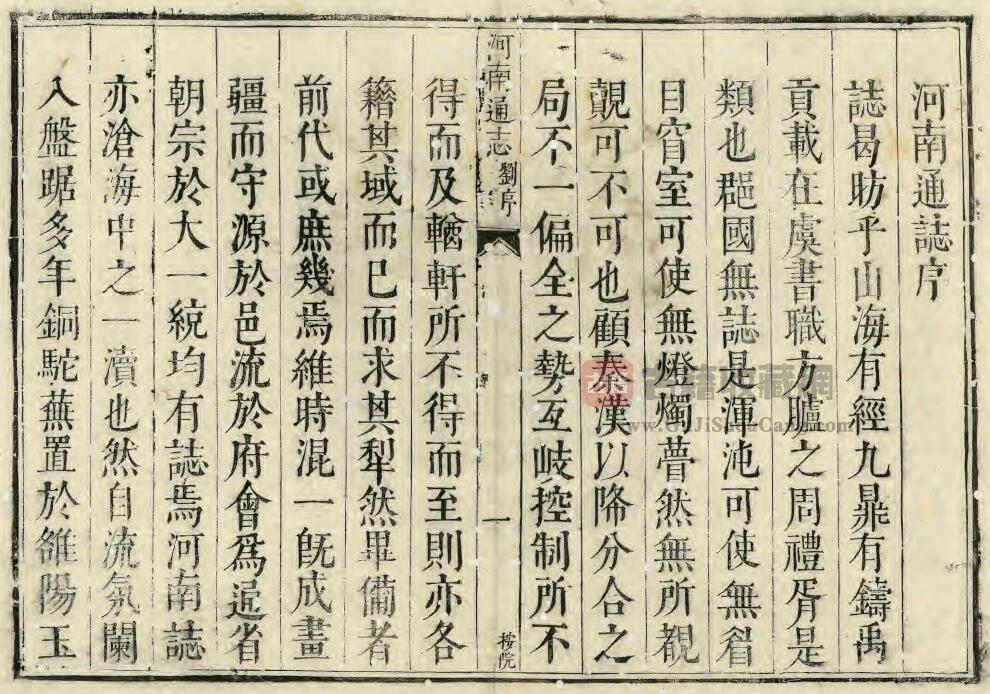 河南通誌序
誌曷昉乎山海有經九鼎有鑄禹
貢載在虞書職方臚之周禮胥是
類也郡國無誌是渾沌可使無眉
目窅室可使無燈燭瞢然無所覩
覿可不可也顧秦漢以降分合之
局不一偏全之勢互岐控制所不
河南通志
劉序
一
按院
得而及輶軒所不得而至則亦各
籍其域而已而求其犁然畢備者
前代或庶幾焉維時混一既成畫
疆而守源於邑流於府會爲通省
朝宗於大一統均有誌焉河南誌
亦滄海中之一瀆也然自流氛闌
入盤踞多年銅駝蕪置於雒陽玉
www.GuJiShuCang.com